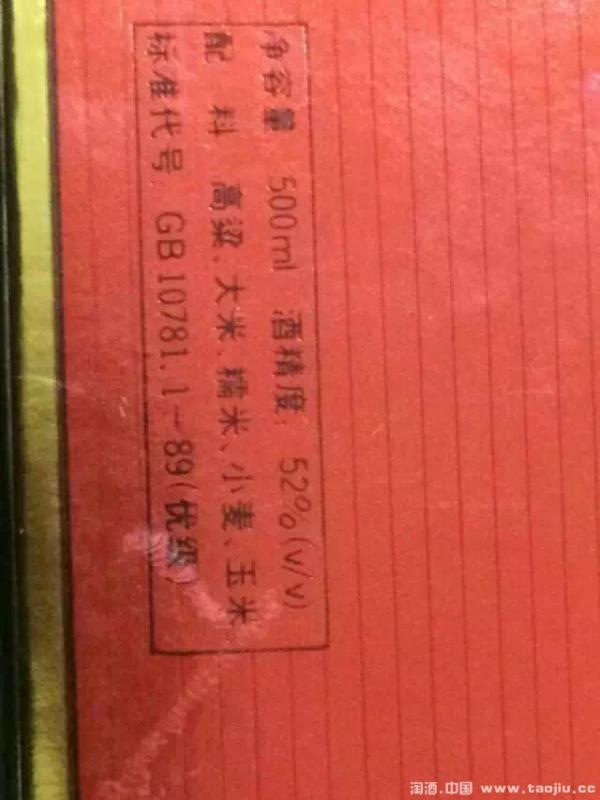 净容量 500ml 酒精度: 52%(v/v)
配 料 高粱、大米、糯米、小麦、玉米
标准代号: GB10781.1-89(优级)
淘酒.中国 www.taojiu.cc